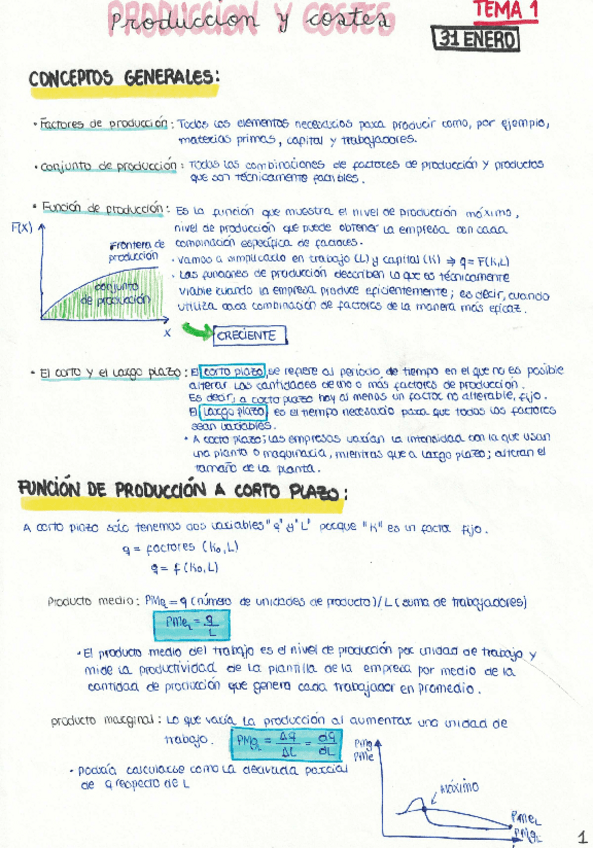 Producción y costes
TEMA 1
31 ENERO
CONCEPTOS GENERALES:
· Factores de producción: Todos los elementos necesarios para producir como, por ejemplo,
materias primas, capital y trabajadores.
· conjunto de producción: Todas las combinaciones de factores de producción y productos
que son técnicamente factibles.
· Función de producción: Es la función que muestra el nivel de producción máximo,
nivel de producción que puede obtener la empresa con cada
combinación específica de factores.
· Vamos a simplificarlo en trabajo (L) y capital (K) ⇒ q = F(K,L)
· Las funciones de producción describen lo que es técnicamente
viable cuando la empresa produce eficientemente; es decir, cuando
utiliza cada combinación de factores de la manera más eficaz.
F(X)
Frontera de
producción
conjunto
de producción
X
CRECIENTE
· El corto y el largo plazo: El corto plazo, se refiere al periodo de tiempo en el que no es posible
alterar las cantidades de uno o más factores de producción.
Es decir, a corto plazo hay al menos un factor no alterable, fijo.
El largo plazo es el tiempo necesario para que todos los factores
sean variables.
· A corto plazo; las empresas varían la intensidad con la que usan
una planta o maquinaria, mientras que a largo plazo; alteran el
tamaño de la planta.
FUNCIÓN DE PRODUCCIÓN A CORTO PLAZO:
A corto plazo sólo tenemos dos variables "q" y "L" porque "K" es un factor fijo.
q = factores (K₀,L)
q = f(K₀,L)
Producto medio: PMe_L = q (número de unidades de producto) / L (suma de trabajadores)
PMe_L = q/L
· El producto medio del trabajo es el nivel de producción por unidad de trabajo y
mide la productividad de la plantilla de la empresa por medio de la
cantidad de producción que genera cada trabajador en promedio.
producto marginal: Lo que varía la producción al aumentar una unidad de
trabajo. PMg_L = Δq/ΔL = dq/dL
· Podría calcularse como la derivada parcial
de q respecto de L
PMg
PMe
Máximo
PMe_L
PMg_L
1